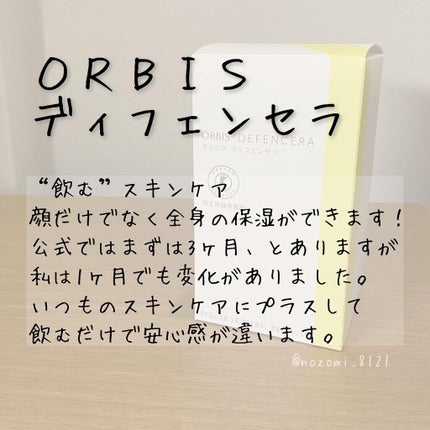 ORBIS
ディフェンセラ
ORBIS DEFENCERA
オルビス ディフェンセラ
“飲む”スキンケア
顔だけでなく全身の保湿ができます!
公式ではまずは3ヶ月、とありますが
私は1ヶ月でも変化がありました。
いつものスキンケアにプラスして
飲むだけで安心感が違います。
@nozomi_8121